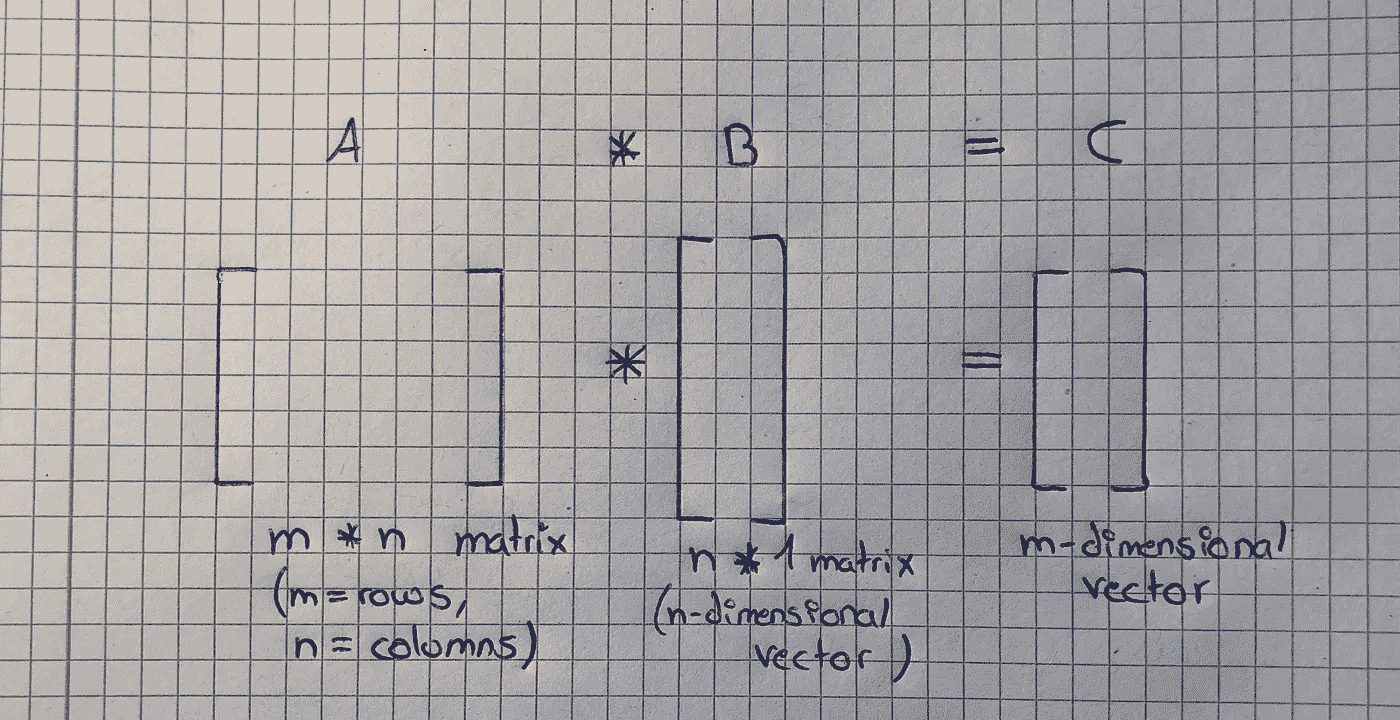 A * B = C
* =
m * n matrix
(m=rows,
n = colomns)
n * 1 matrix
(n-dimensional
vector)
m-dimensional
vector